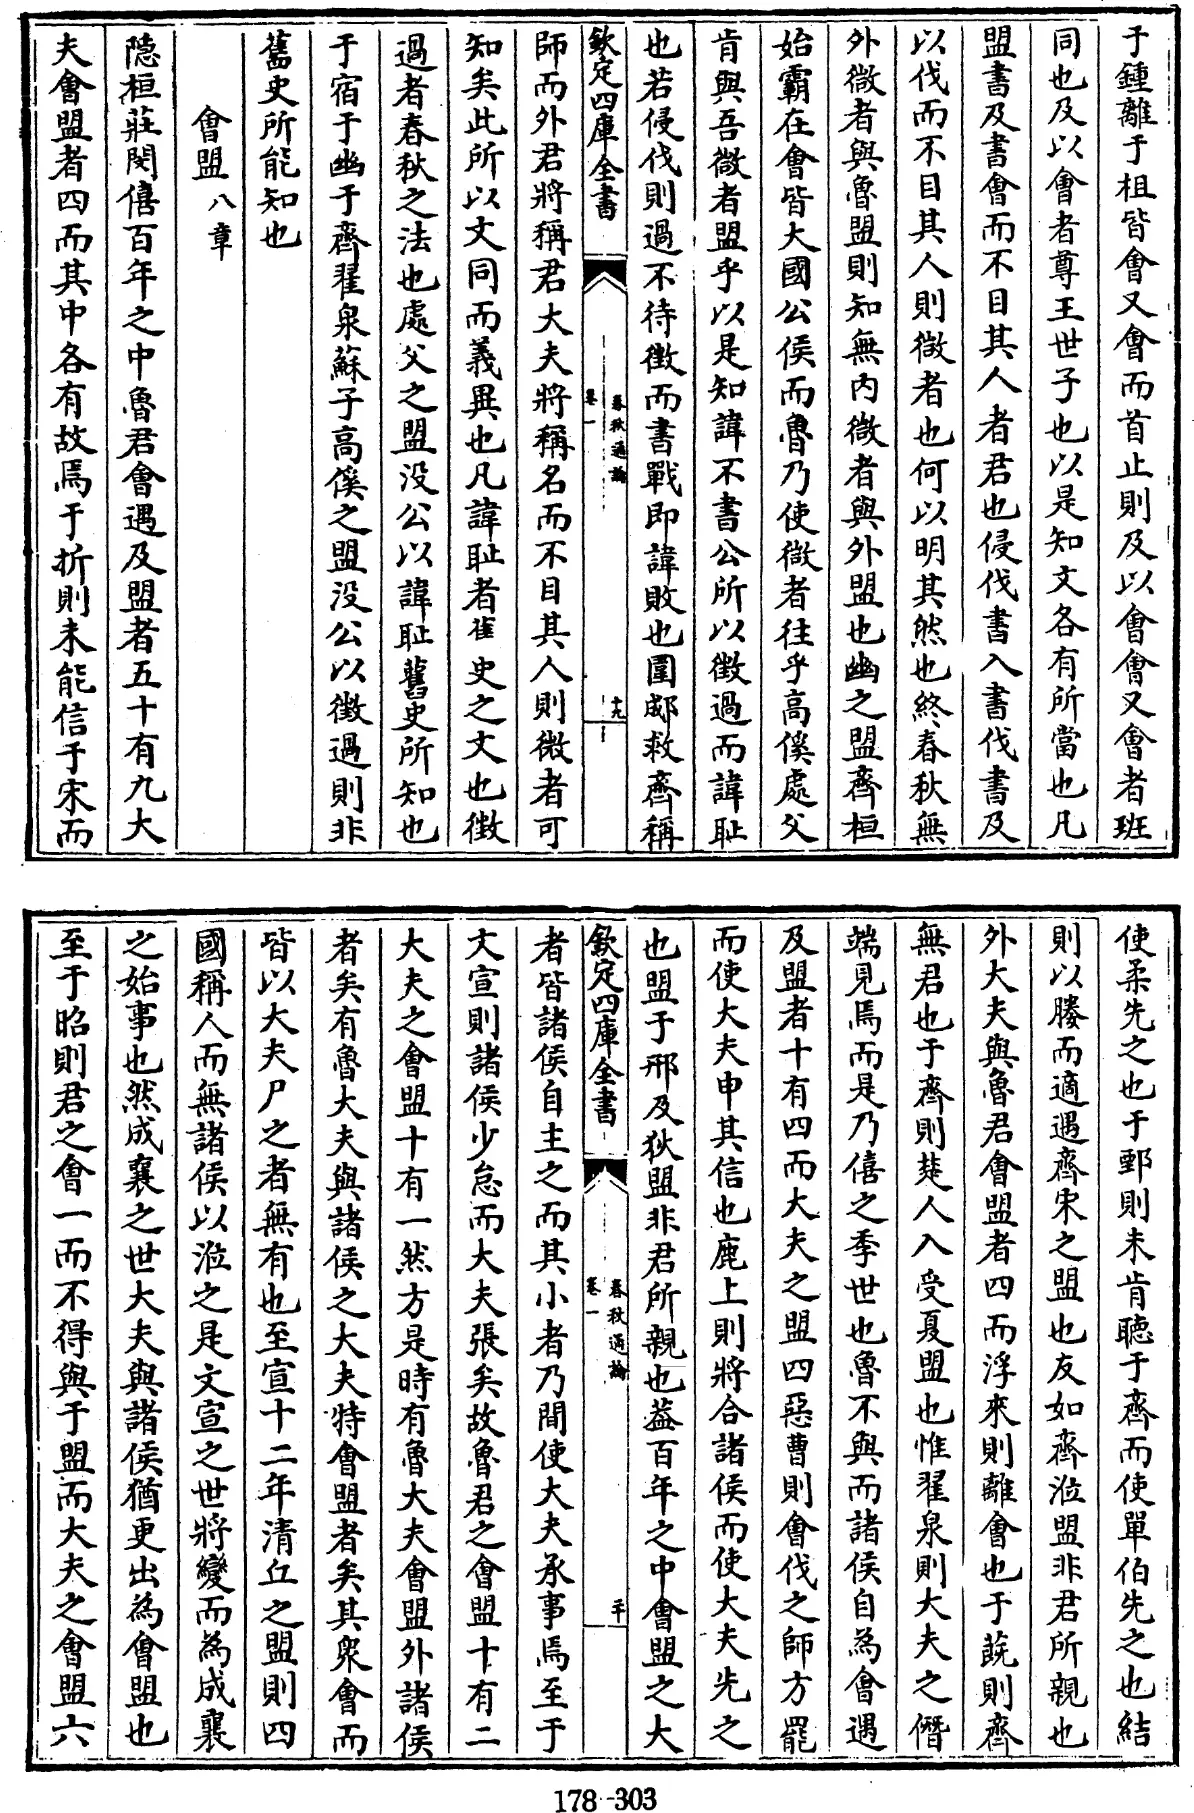 于鍾離于柤皆會又會而首止則及以會會又會者班
同也及以會者尊王世子也以是知文各有所當也凡
盟書及書會而不目其人者君也侵伐書入書伐書及
以伐而不目其人則微者也何以明其然也終春秋無
外微者與魯盟則知無内微者與外盟也幽之盟齊桓
始霸在會皆大國公侯而魯乃使微者往乎高傒處父
肯與吾微者盟乎以是知諱不書公所以徴過而諱恥
也若侵伐則過不待徴而書戰即諱敗也圍郕救齊稱
欽定四庫全書
春秋通論
卷一
十九
師而外君將稱君大夫將稱名而不目其人則微者可
知矣此所以文同而義異也凡諱恥者隹史之文也徴
過者春秋之法也處父之盟没公以諱恥舊史所知也
于宿于幽于齊翟泉蘇子高傒之盟没公以徴過則非
舊史所能知也
會盟八章
隠桓莊閔僖百年之中魯君會遇及盟者五十有九大
夫會盟者四而其中各有故焉于折則未能信于宋而
使柔先之也于鄄則未肯聽于齊而使單伯先之也結
則以媵而適遇齊宋之盟也友如齊涖盟非君所親也
外大夫與魯君會盟者四而浮來則離會也于蔇則齊
無君也于齊則楚人入受夏盟也惟翟泉則大夫之僭
端見焉而是乃僖之季世也魯不與而諸侯自為會遇
及盟者十有四而大夫之盟四惡曹則會伐之師方罷
而使大夫申其信也鹿上則將合諸侯而使大夫先之
也盟于邢及狄盟非君所親也葢百年之中會盟之大
欽定四庫全書
春秋通論
卷一
二十
者皆諸侯自主之而其小者乃間使大夫承事焉至于
文宣則諸侯少怠而大夫張矣故魯君之會盟十有二
大夫之會盟十有一然方是時有魯大夫會盟外諸侯
者矣有魯大夫與諸侯之大夫特會盟者矣其衆會而
皆以大夫尸之者無有也至宣十二年清丘之盟則四
國稱人而無諸侯以涖之是文宣之世將變而為成襄
之始事也然成襄之世大夫與諸侯猶更出為會盟也
至于昭則君之會一而不得與于盟而大夫之會盟六
178-303